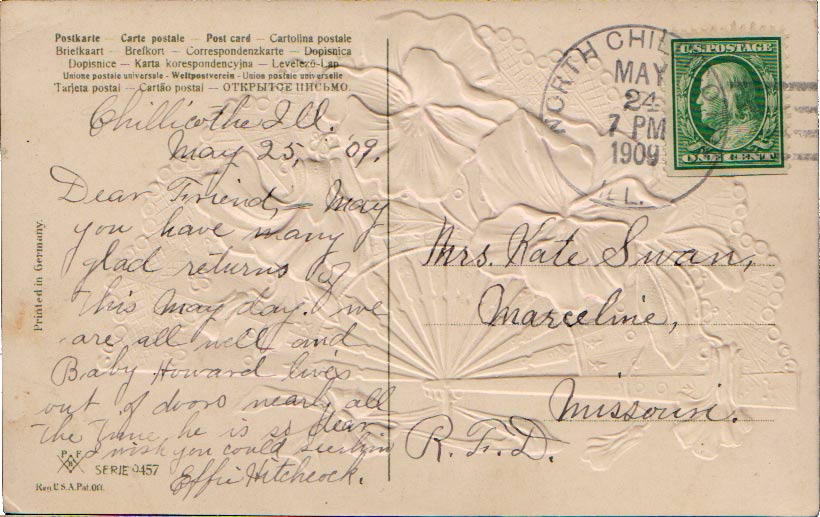 Postkarte — Carte postale — Post card — Cartolina postale
Briefkaart — Brefkort — Correspondenzkarte — Dopisnica
Dopisnice — Karta korespondencyjna — Levelező-Lap
Unione postale universale - Weltpostverein - Union postale universelle
Tarjeta postal — Cartão postal — ОТКРЫТОЕ ПИСЬМО.
Chillicothe Ill.
May 25, '09.
Dear Friend, — May
you have many
glad returns of
this May day. We
are all well and
Baby Howard lives
out of doors nearly all
the time he is so dear
I wish you could see him
Effie Hitchcock.
Printed in Germany.
P F B
SERIE 9457
Reg U.S.A. Pat. Off.
NORTH CHIL
MAY
24
7 PM
1909
ILL.
U.S. POSTAGE
ONE CENT
Mrs. Kate Swan,
Marceline,
Missouri.
R. F. D.